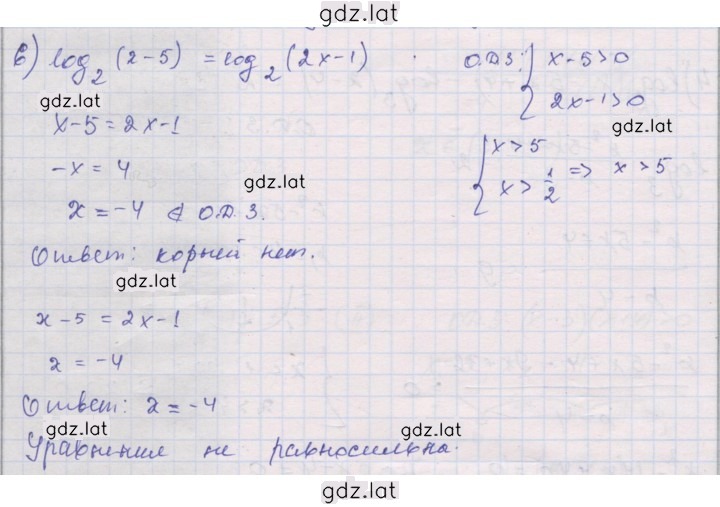 gdz.lat
б) log₂(x-5) = log₂(2x-1)
О.Д.З. { x-5>0
2x-1>0
gdz.lat
gdz.lat
x-5=2x-1
{ x>5
x>1/2 => x>5
-x=4
gdz.lat
x=-4 ∉ О.Д.З.
Ответ: корней нет.
gdz.lat
x-5=2x-1
gdz.lat
x=-4
Ответ: x=-4
gdz.lat
gdz.lat
Уравнения не равносильна.
gdz.lat